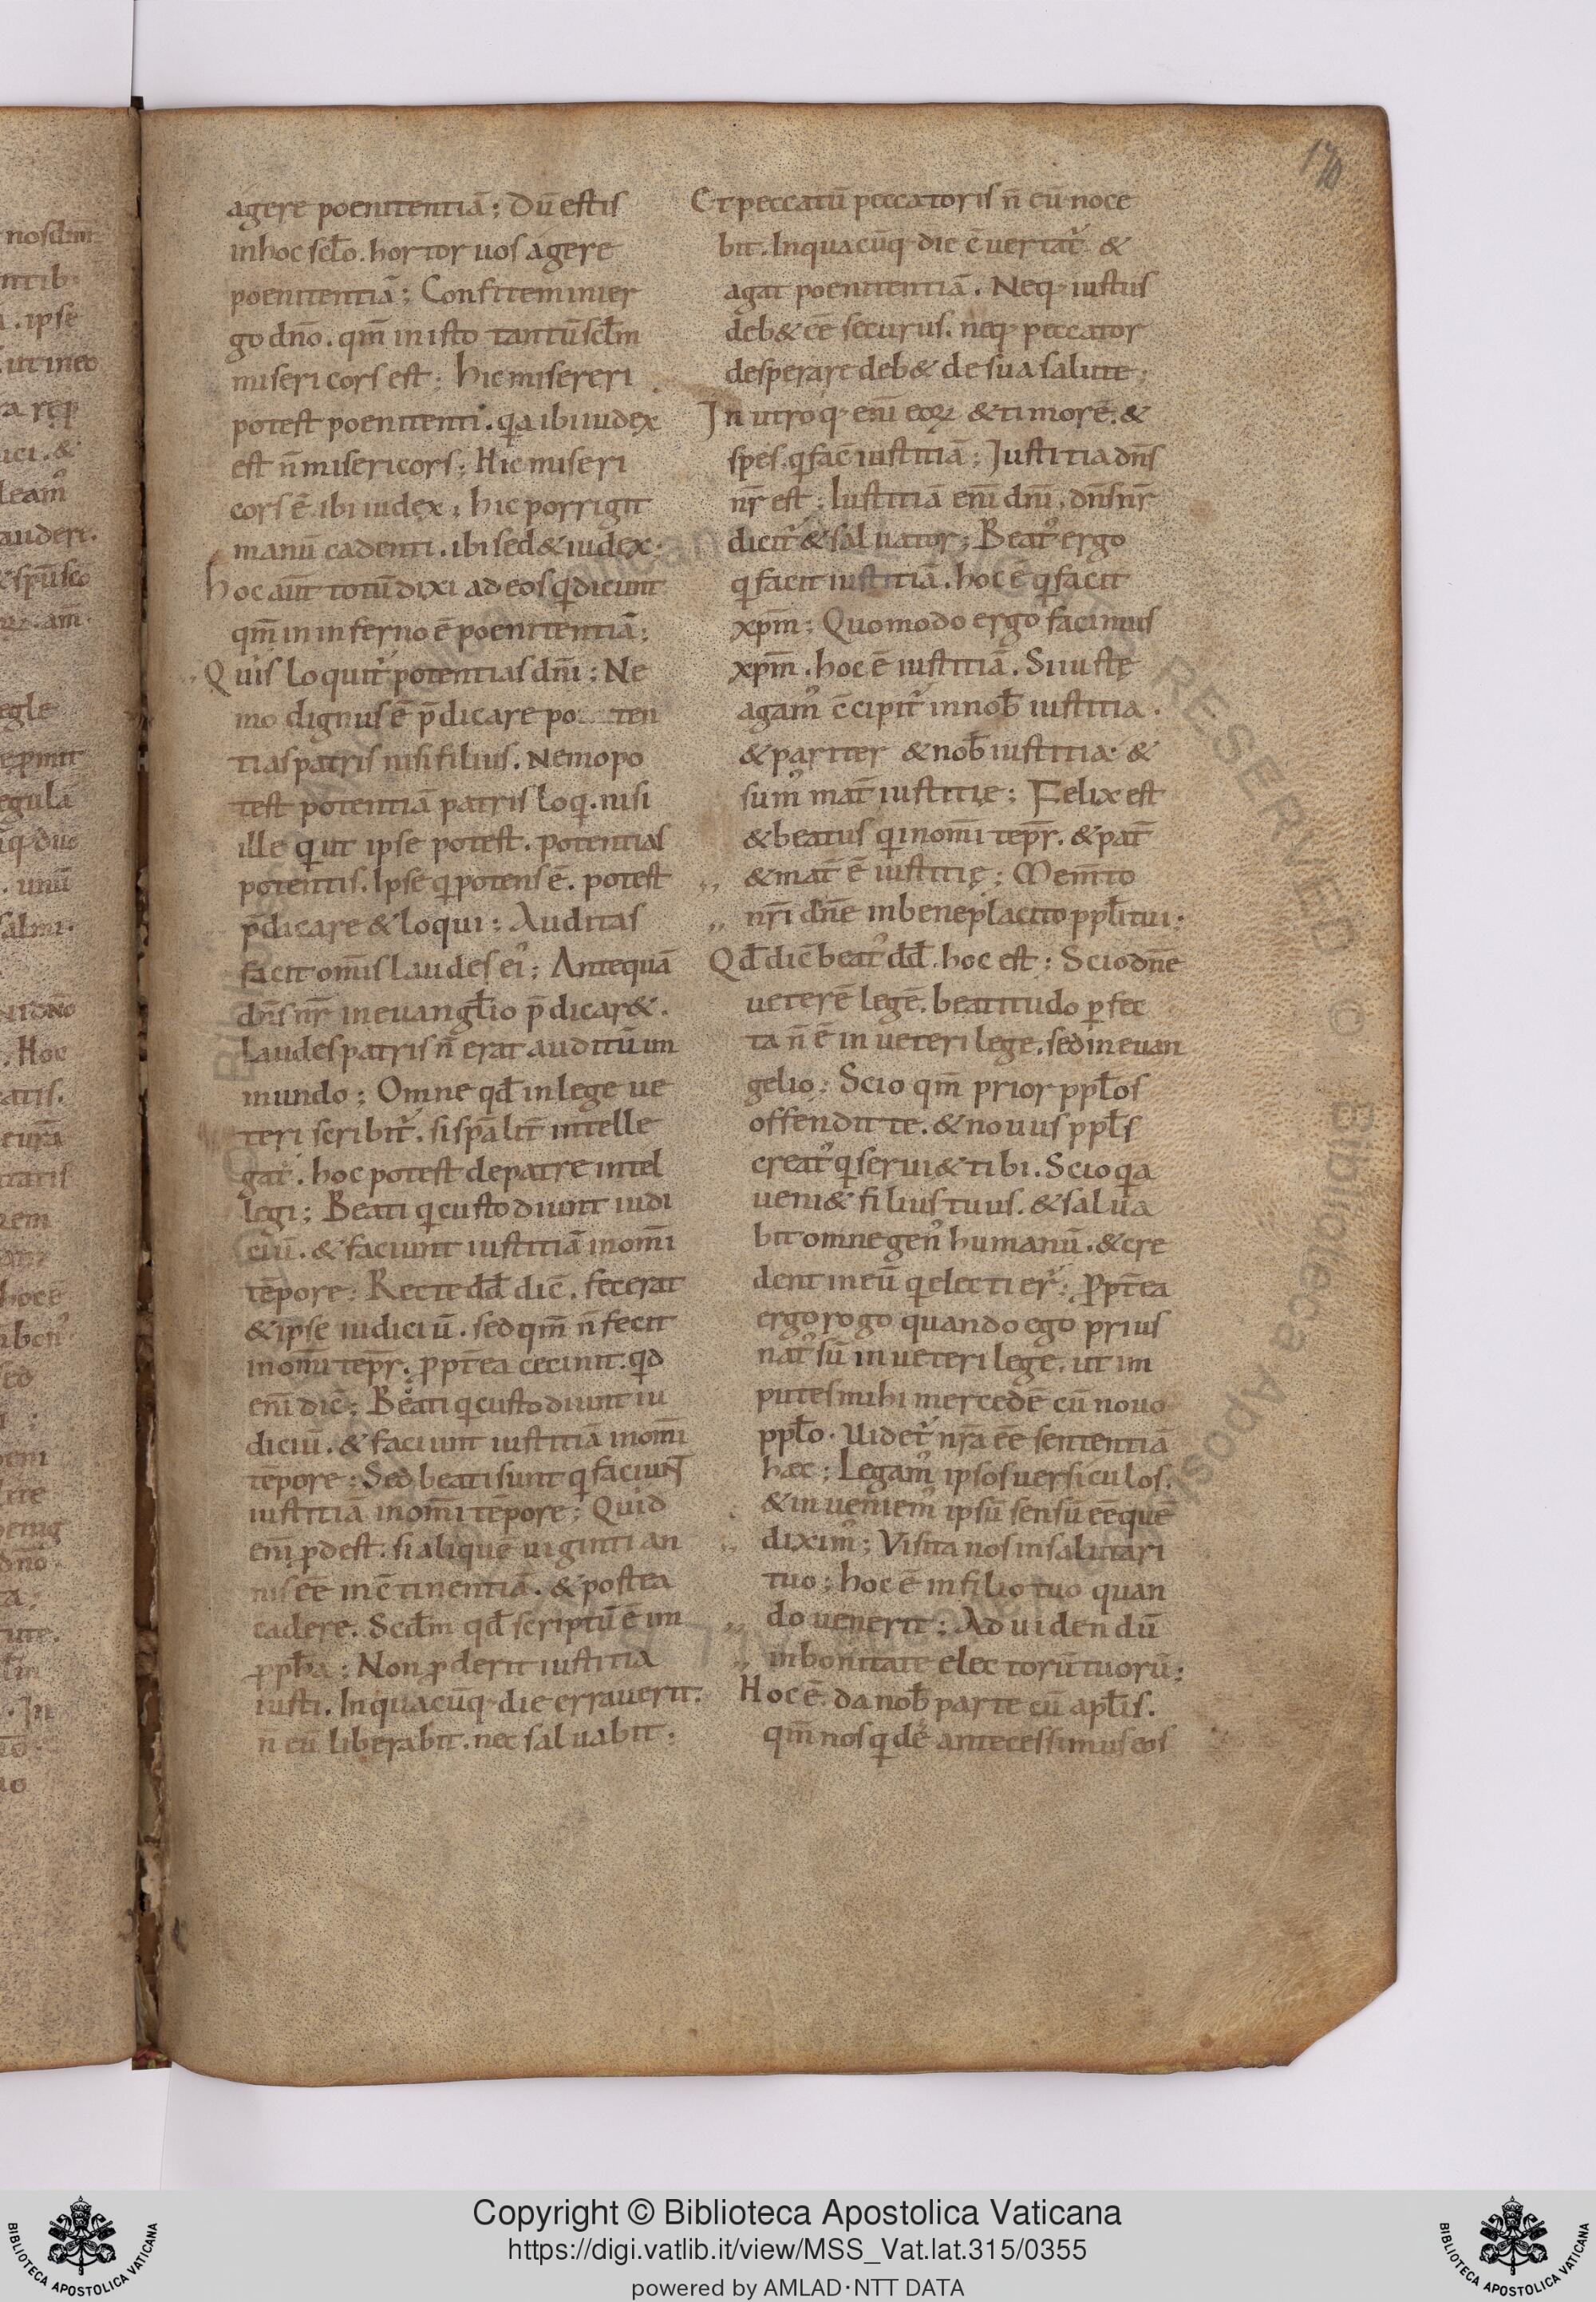 170
agere poenitentiā; Dū estis
in hoc sclo. hortor uos agere
poenitentiā; Confitemini er
go dn̄o. qm̄ in isto tantū sclm
misericors est; hic misereri
potest poenitenti. qa ibi iudex
est n̄ misericors; Hic miseri
cors ē. ibi iudex; hic porrigit
manū cadenti. ibi sed& iudex;
Hoc aūt totū dixi ad eos qdicunt
qm̄ in inferno ē poenitentiā;
Quis loquit᷑ potentias dn̄i; Ne
mo dignus ē p̄dicare po ten
tias patris nisi filius. Nemo po
test potentiā patris loq. nisi
ille q ut ipse potest. potentias
potentis. Ipse q potens ē. potest
p̄dicare & loqui; Auditas
facit om̄is laudes ei᾽; Antequā
dn̄s nr̄ in euanglio p̄dicar&.
Laudes patris n̄ erat auditū im
mundo; Omne qđ in lege ue
teri scribit᷑. si spālit̄ intelle
gat᷑. hoc potest de patre intel
legi; Beati q custodiunt iudi
ciū. & faciunt iustitiā in om̄i
tēpore; Recte dđ dic̄. fecerat
& ipse iudiciū. sed qm̄ n̄ fecit
in om̄i tēpr̄. ꝓpt̄ea cecinit. qd
eni̅ dic̄; Beati q custodiunt iu
diciū. & faciunt iustitiā in om̄i
tēpore; Sed beati sunt q faciunt
iustitiā in om̄i tēpore; Quid
eni̅ ꝓdest. si aliquē uiginti an
nis ēe in c̄tinentiā. & postea
cadere. Scdm qđ scriptū ē im
ꝓph̄a; Non ꝓderit iustitia
iusti. In quacūq die errauerit.
n̄ eū liberabit. nec saluabit;
Et peccatū peccatoris n̄ eū noce
bit. In quacūq die c̄uertat᷑ &
agat poenitentiā. Neq iustus
deb& ēe securus. neq peccator
desperare deb& de sua salute;
In utroq eni̅ eoꝝ & timore. &
spes. q fac̄ iustitiā; Iustitia dn̄s
nr̄ est; Iustitiā eni̅ dn̄i, dn̄s nr̄
dicit᷑ & saluator; Beat᾽ ergo
q facit iustitiā. hoc ē q facit
xpm̄; Quomodo ergo facimus
xpm̄. hoc ē iustitiā. Si iuste
agam᾽ c̄cipit᷑ in nob̄ iustitia.
& pariter & nob̄ iustitia. &
sum᾽ mat̄ iustitię; Felix est
& beatus q in om̄i tēpr̄. & pat̄
„ & mat̄ ē iustitię; Mem̄to
„ nr̄i dn̄e in beneplacito ppli tui.
Qđ dic̄ beat᾽ dđ. hoc est; Scio dn̄e
ueterē legē. beatitudo ꝑfec
ta n̄ ē in ueteri lege. sed in euan
gelio; Scio qm̄ prior pplos
offendit te. & nouus ppls
creat᾽ q serui& tibi. Scio qa
ueni& filius tuus. & salua
bit omne gen᾽ humanū. & cre
dent in eū q electi er᷑; Ꝓpt̄ea
ergo rogo quando ego prius
nat᾽ sū in ueteri lege. ut im
putes mihi mercedē cū nouo
pplo. Uidet᷑ nr̄a ēe sententiā
hęc; Legam᾽ ipsos uersiculos.
& inueniem᾽ ipsū sensū ēe quē
„ dixim᾽; Visita nos in salutari
tuo; hoc ē in filio tuo quan
„ do uenerit; Ad uidendū
„ in bonitate electorū tuorū;
Hoc ē. da nob̄ parte cū aplis.
qm̄ nos qdē antecessimus eos
nosclm
ntib
. ipse
ut in eo
leam᾽
auderi.
& sp̄u sc̄o
egulā
. unū
salmi.
. Hoc
hoc ē
Copyright © Biblioteca Apostolica Vaticana
https://digi.vatlib.it/view/MSS_Vat.lat.315/0355
powered by AMLAD·NTT DATA
BIBLIOTECA APOSTOLICA VATICANA
BIBLIOTECA APOSTOLICA VATICANA